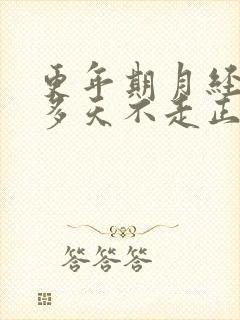 更年期月经
多天不走正
答答答